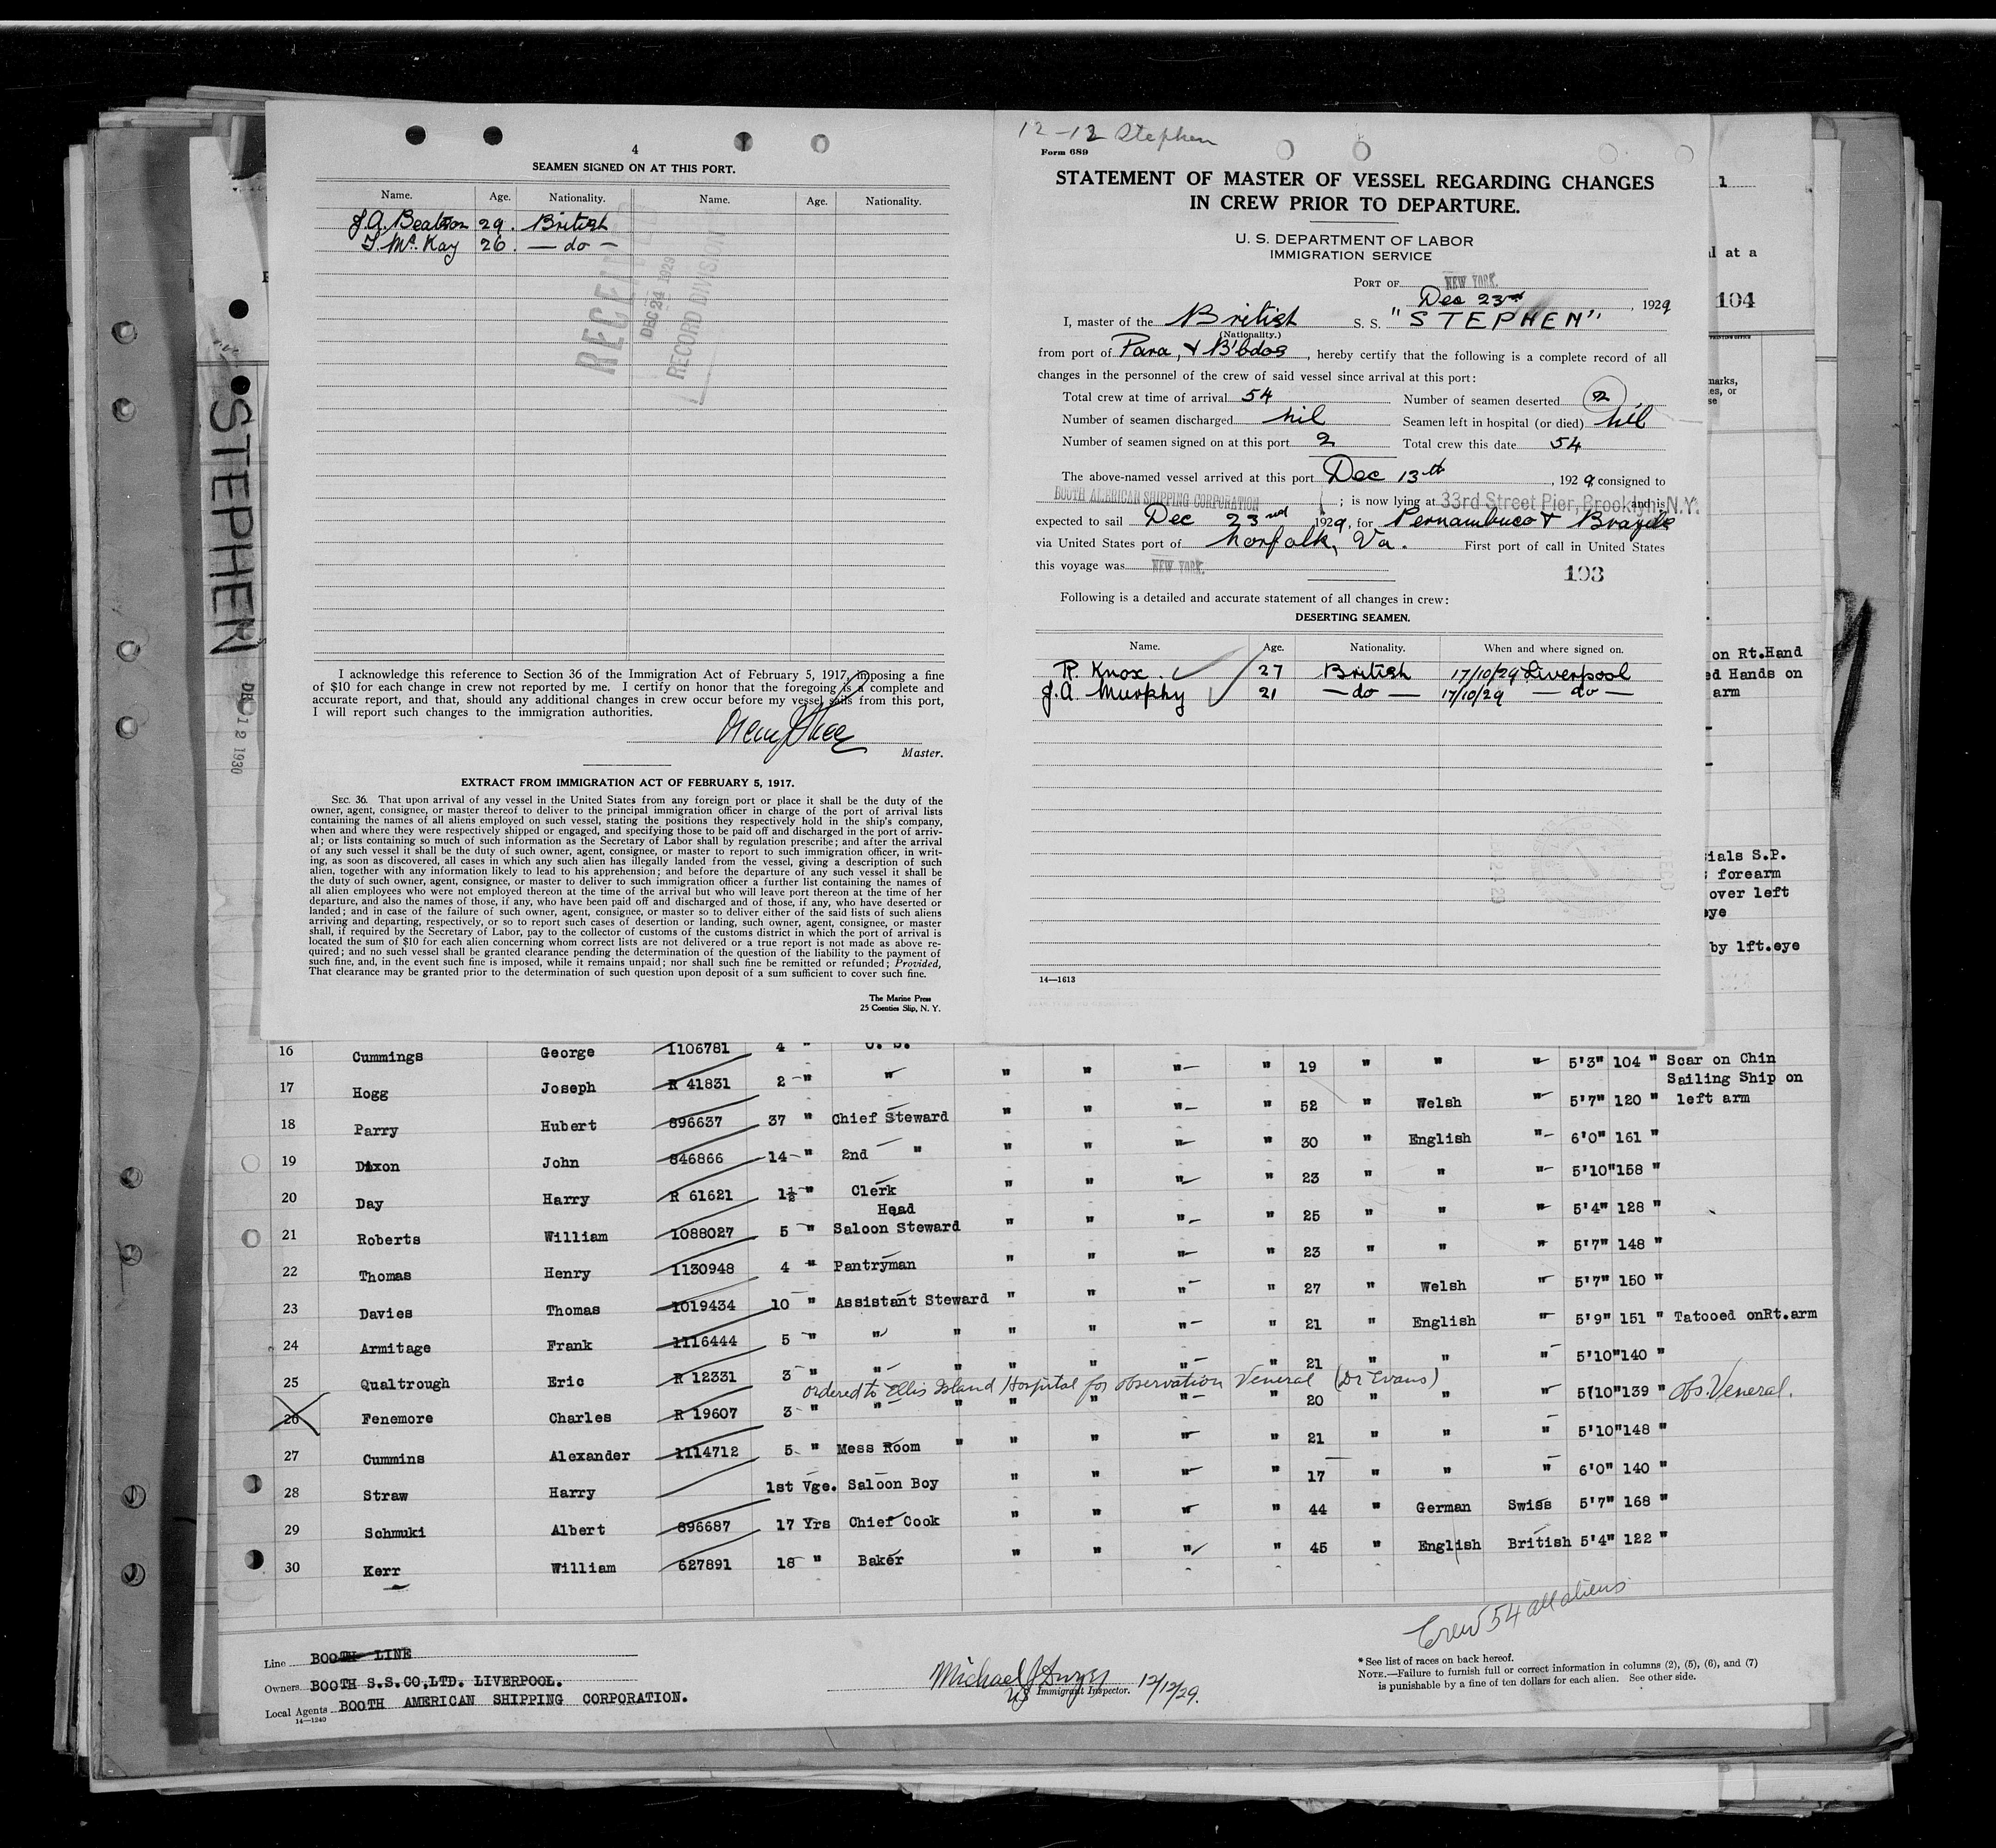 4
SEAMEN SIGNED ON AT THIS PORT.
Name. Age. Nationality. Name. Age. Nationality.
J.A. Beatson 29. British
McKay 26. — do —
RECEIVED
DEC 24 1929
RECORD DIVISION
I acknowledge this reference to Section 36 of the Immigration Act of February 5, 1917, imposing a fine
of $10 for each change in crew not reported by me. I certify on honor that the foregoing is a complete and
accurate report, and that, should any additional changes in crew occur before my vessel sails from this port,
I will report such changes to the immigration authorities.
Master.
EXTRACT FROM IMMIGRATION ACT OF FEBRUARY 5, 1917.
SEC. 36. That upon arrival of any vessel in the United States from any foreign port or place it shall be the duty of the
owner, agent, consignee, or master thereof to deliver to the principal immigration officer in charge of the port of arrival lists
containing the names of all aliens employed on such vessel, stating the positions they respectively hold in the ship's company,
when and where they were respectively shipped or engaged, and specifying those to be paid off and discharged in the port of arriv-
al; or lists containing so much of such information as the Secretary of Labor shall by regulation prescribe; and after the arrival
of any such vessel it shall be the duty of such owner, agent, consignee, or master to report to such immigration officer, in writ-
ing, as soon as discovered, all cases in which any such alien has illegally landed from the vessel, giving a description of such
alien, together with any information likely to lead to his apprehension; and before the departure of any such vessel it shall be
the duty of such owner, agent, consignee, or master to deliver to such immigration officer a further list containing the names of
all alien employees who were not employed thereon at the time of the arrival but who will leave port thereon at the time of her
departure, and also the names of those, if any, who have been paid off and discharged and of those, if any, who have deserted or
landed; and in case of the failure of such owner, agent, consignee, or master so to deliver either of the said lists of such aliens
arriving and departing, respectively, or so to report such cases of desertion or landing, such owner, agent, consignee, or master
shall, if required by the Secretary of Labor, pay to the collector of customs of the customs district in which the port of arrival is
located the sum of $10 for each alien concerning whom correct lists are not delivered or a true report is not made as above re-
quired; and no such vessel shall be granted clearance pending the determination of the question of the liability to the payment of
such fine, and, in the event such fine is imposed, while it remains unpaid; nor shall such fine be remitted or refunded; Provided,
That clearance may be granted prior to the determination of such question upon deposit of a sum sufficient to cover such fine.
The Marine Press
25 Coenties Slip, N. Y.
12-12 Stephen
Form 689
STATEMENT OF MASTER OF VESSEL REGARDING CHANGES
IN CREW PRIOR TO DEPARTURE.
U. S. DEPARTMENT OF LABOR
IMMIGRATION SERVICE
PORT OF NEW YORK.
Dec 23rd, 1929
I, master of the British S. S. "STEPHEN"
(Nationality.)
from port of Para, & B'bdos, hereby certify that the following is a complete record of all
changes in the personnel of the crew of said vessel since arrival at this port:
Total crew at time of arrival 54 Number of seamen deserted 2
Number of seamen discharged nil Seamen left in hospital (or died) nil
Number of seamen signed on at this port 2 Total crew this date 54
The above-named vessel arrived at this port Dec 13th, 1929 consigned to
BOOTH AMERICAN SHIPPING CORPORATION; is now lying at 33rd Street Pier, Brooklyn, N.Y. and is
expected to sail Dec 23rd 1929, for Pernambuco & Brazils
via United States port of Norfolk, Va. First port of call in United States
this voyage was NEW YORK.
103
Following is a detailed and accurate statement of all changes in crew:
DESERTING SEAMEN.
Name. Age. Nationality. When and where signed on.
R. Knox. 27 British 17/10/29 Liverpool
J.A. Murphy 21 — do — 17/10/29 — do —
14—1613
STEPHEN
12 1930
1
l at a
104
marks,
es, or
se
on Rt.Hand
ed Hands on
arm
ials S.P.
forearm
over left
eye
by lft.eye
16 Cummings George 1106781 4 " " 19 " " " 5'3" 104 " Scar on Chin
17 Hogg Joseph R 41831 2 " " " " " " 52 " Welsh " 5'7" 120 " Sailing Ship on left arm
18 Parry Hubert 896637 37 " Chief Steward " " " " 30 " English " 6'0" 161 "
19 Dixon John 846866 14 " 2nd " " " " " 23 " " " 5'10" 158 "
20 Day Harry R 61621 1½ " Clerk " " " " 25 " " " 5'4" 128 "
21 Roberts William 1088027 5 " Head Saloon Steward " " " " 23 " " " 5'7" 148 "
22 Thomas Henry 1130948 4 " Pantryman " " " " 27 " Welsh " 5'7" 150 "
23 Davies Thomas 1019434 10 " Assistant Steward " " " " 21 " English " 5'9" 151 " Tatooed onRt.arm
24 Armitage Frank 1116444 5 " " " " " " " 21 " " " 5'10" 140 "
ordered to Ellis Island Hospital for observation Veneral (Dr Evans)
25 Qualtrough Eric R 12331 3 " " " " " " " 20 " " " 5'10" 139 " Obs. Veneral.
26 Fenemore Charles R 19607 3 " " " " " " " 21 " " " 5'10" 148 "
27 Cummins Alexander 1114712 5 " Mess Room " " " " " 17 " " " 6'0" 140 "
28 Straw Harry 1st Vge. Saloon Boy " " " " 44 " German Swiss 5'7" 168 "
29 Schmuki Albert 896687 17 Yrs Chief Cook " " " " 45 " English British 5'4" 122 "
30 Kerr William 627891 18 " Baker " " " "
Crew 54 all aliens
Line BOOTH LINE
Owners BOOTH S.S.CO,LTD. LIVERPOOL.
Local Agents BOOTH AMERICAN SHIPPING CORPORATION.
14—1240
Michael J
US Immigrant Inspector. 12/12/29.
* See list of races on back hereof.
NOTE.—Failure to furnish full or correct information in columns (2), (5), (6), and (7)
is punishable by a fine of ten dollars for each alien. See other side.